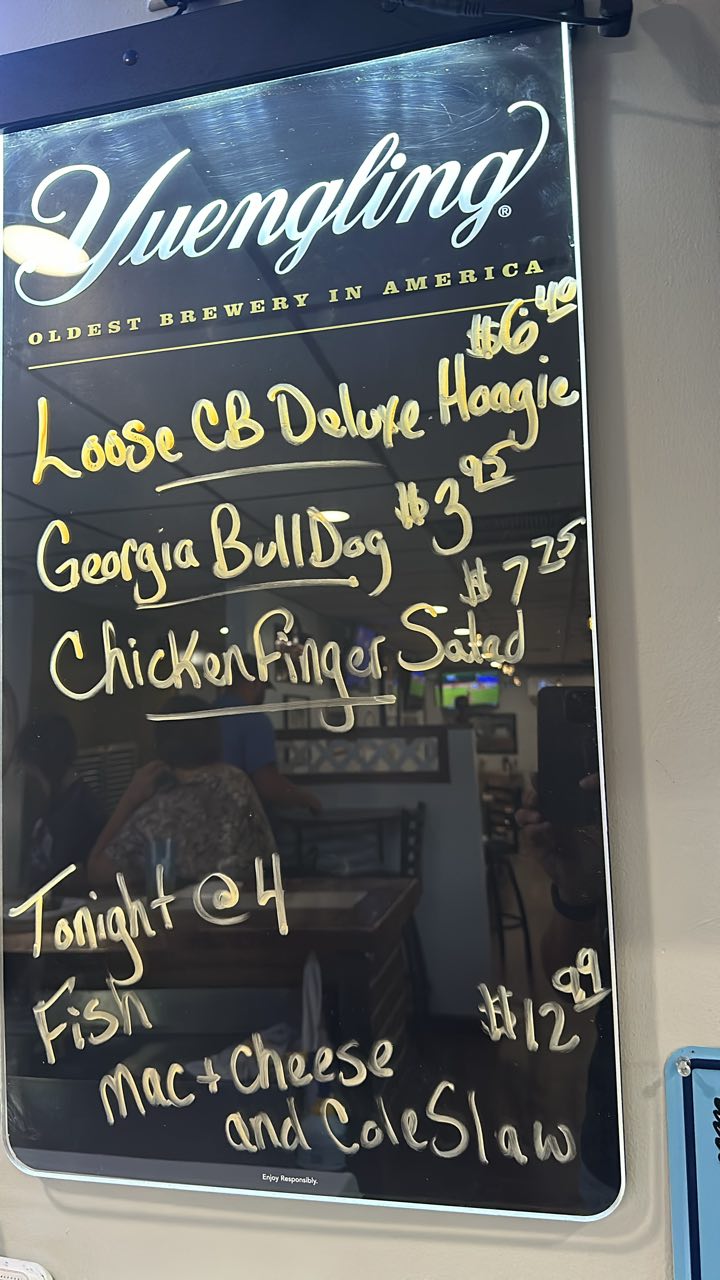 Yuengling®
OLDEST BREWERY IN AMERICA
$6.40
Loose CB Deluxe Hoagie
Georgia BullDog $3.95
$7.25
Chicken Finger Salad
Tonight @ 4
Fish $12.99
Mac + Cheese
and ColeSlaw
Enjoy Responsibly.